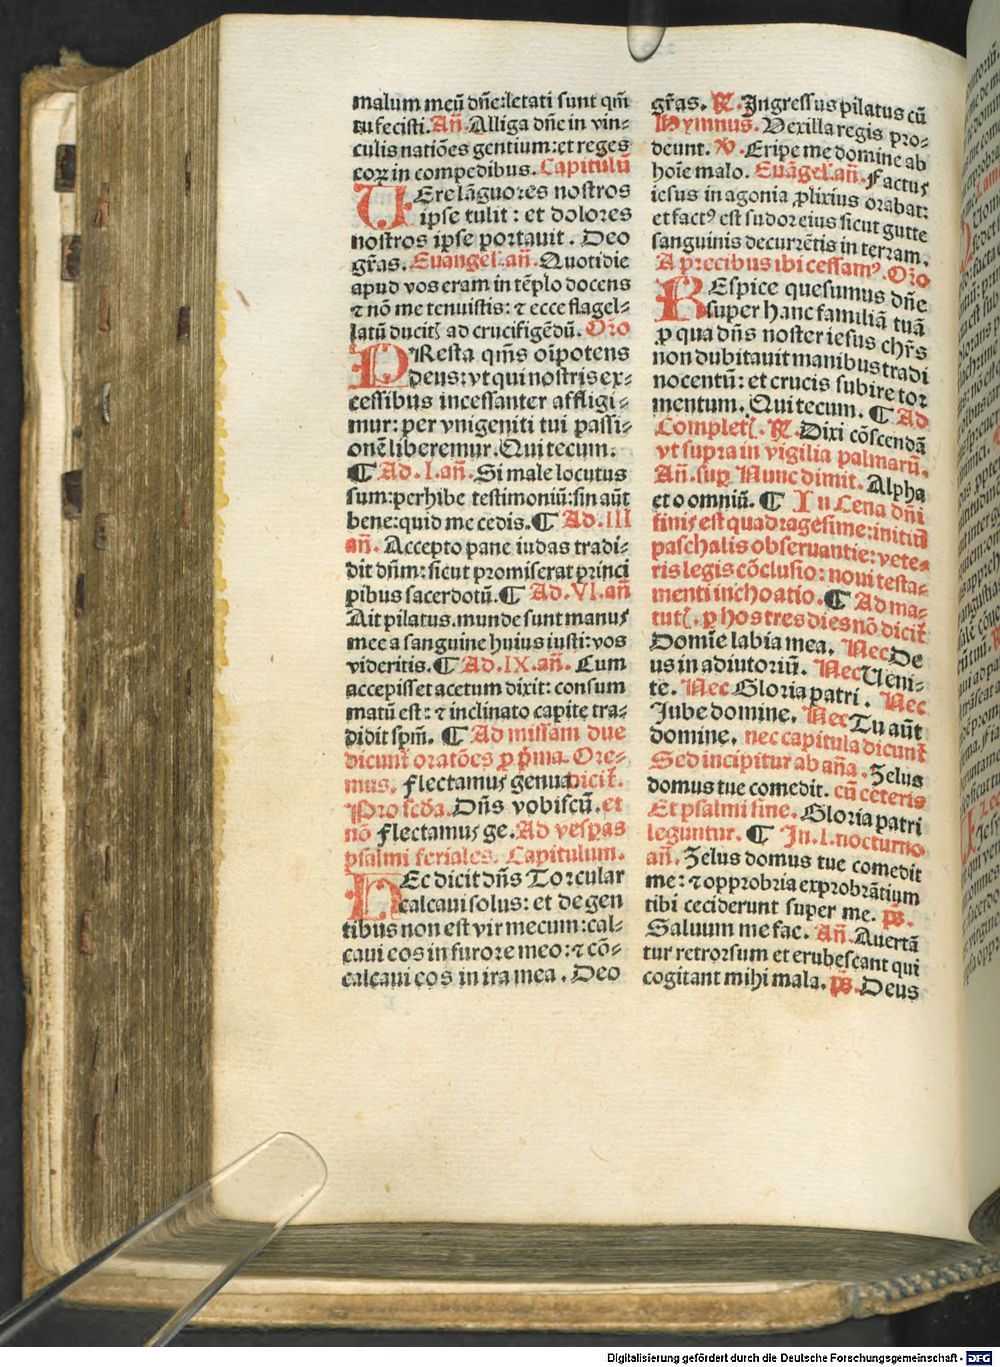 malum meū dn̄e:letati sunt qm̄
tu fecisti. An̄. Alliga dn̄e in vin⸗
culis natiōes gentium:et reges
eoꝝ in compedibus. Capitulū
UEre lāguores nostros
ipse tulit : et dolores
nostros ipse portauit . Deo
gr̄as. Euangel̕. an̄. Quotidie
apud vos eram in tēplo docens
⁊ nō me tenuistis: ⁊ ecce flagel⸗
latū ducit᷒ ad crucifigēdū. Oro
PResta qm̄s oīpotens
deus: vt qui nostris ex⸗
cessibus incessanter affligi⸗
mur: per vnigeniti tui passi⸗
onē liberemur. Qui tecum.
¶ Ad .I. an̄. Si male locutus
sum: perhibe testimoniū: sin aūt
bene: quid me cedis. ¶ Ad .III
an̄. Accepto pane iudas tradi⸗
dit dn̄m: sicut promiserat princi
pibus sacerdotū. ¶ Ad .VI. an̄
Ait pilatus. munde sunt manus
mee a sanguine huius iusti: vos
videritis. ¶ Ad .IX. an̄. Cum
accepisset acetum dixit: consum
matū est: ⁊ inclinato capite tra⸗
didit spm̄. ¶ Ad missam due
dicunt̄ oratōes ꝓ pͥma. Ore⸗
mus. flectamus genua dicit̄.
Pro scd̄a. Dn̄s vobiscū. et
nō flectamus ge. Ad vesꝑas
psalmi feriales. Capitulum.
HEc dicit dn̄s Torcular
calcaui solus: et de gen
tibus non est vir mecum: cal⸗
caui eos in furore meo: ⁊ cō⸗
calcaui eos in ira mea . Deo
gr̄as. ℞. Ingressus pilatus cū
Hymnus. Vexilla regis pro⸗
deunt. ℣. Eripe me domine ab
hoīe malo. Euāgel̕. an̄. Factus
iesus in agonia ꝓlixius orabat:
et factꝰ est sudor eius sicut gutte
sanguinis decurrētis in terram.
A precibus ibi cessamꝰ. Oro
REspice quesumus dn̄e
super hanc familiā tuā
ꝓ qua dn̄s noster iesus chr̄s
non dubitauit manibus tradi
nocentū: et crucis subire tor
mentum. Qui tecum. ¶ Ad
Complet᷒. ℞. Dixi cōscendā
vt supra in vigilia palmarū.
An̄. suꝑ Nunc dimit. Alpha
et o omniū. ¶ In Cena dn̄i
finis est quadragesime: initiū
paschalis obseruantie: vete⸗
ris legis cōclusio: noui testa⸗
menti inchoatio. ¶ Ad ma⸗
tut᷒. ꝑ hos tres dies nō dicit̄
Domīe labia mea. Nec De
us in adiutoriū. Nec Ueni⸗
te. Nec Gloria patri . Nec
Jube domine. Nec Tu aūt
domine. nec capitula dicunt̄
Sed incipitur ab an̄a . Zelus
domus tue comedit. cū ceteris
Et psalmi sine. Gloria patri
leguntur. ¶ In .I. nocturno
an̄. Zelus domus tue comedit
me: ⁊ opprobria exprobrātium
tibi ceciderunt super me. ps̄.
Saluum me fac. An̄. Auertā
tur retrorsum et erubescant qui
cogitant mihi mala. ps̄. Deus
Digitalisierung gefördert durch die Deutsche Forschungsgemeinschaft - DFG